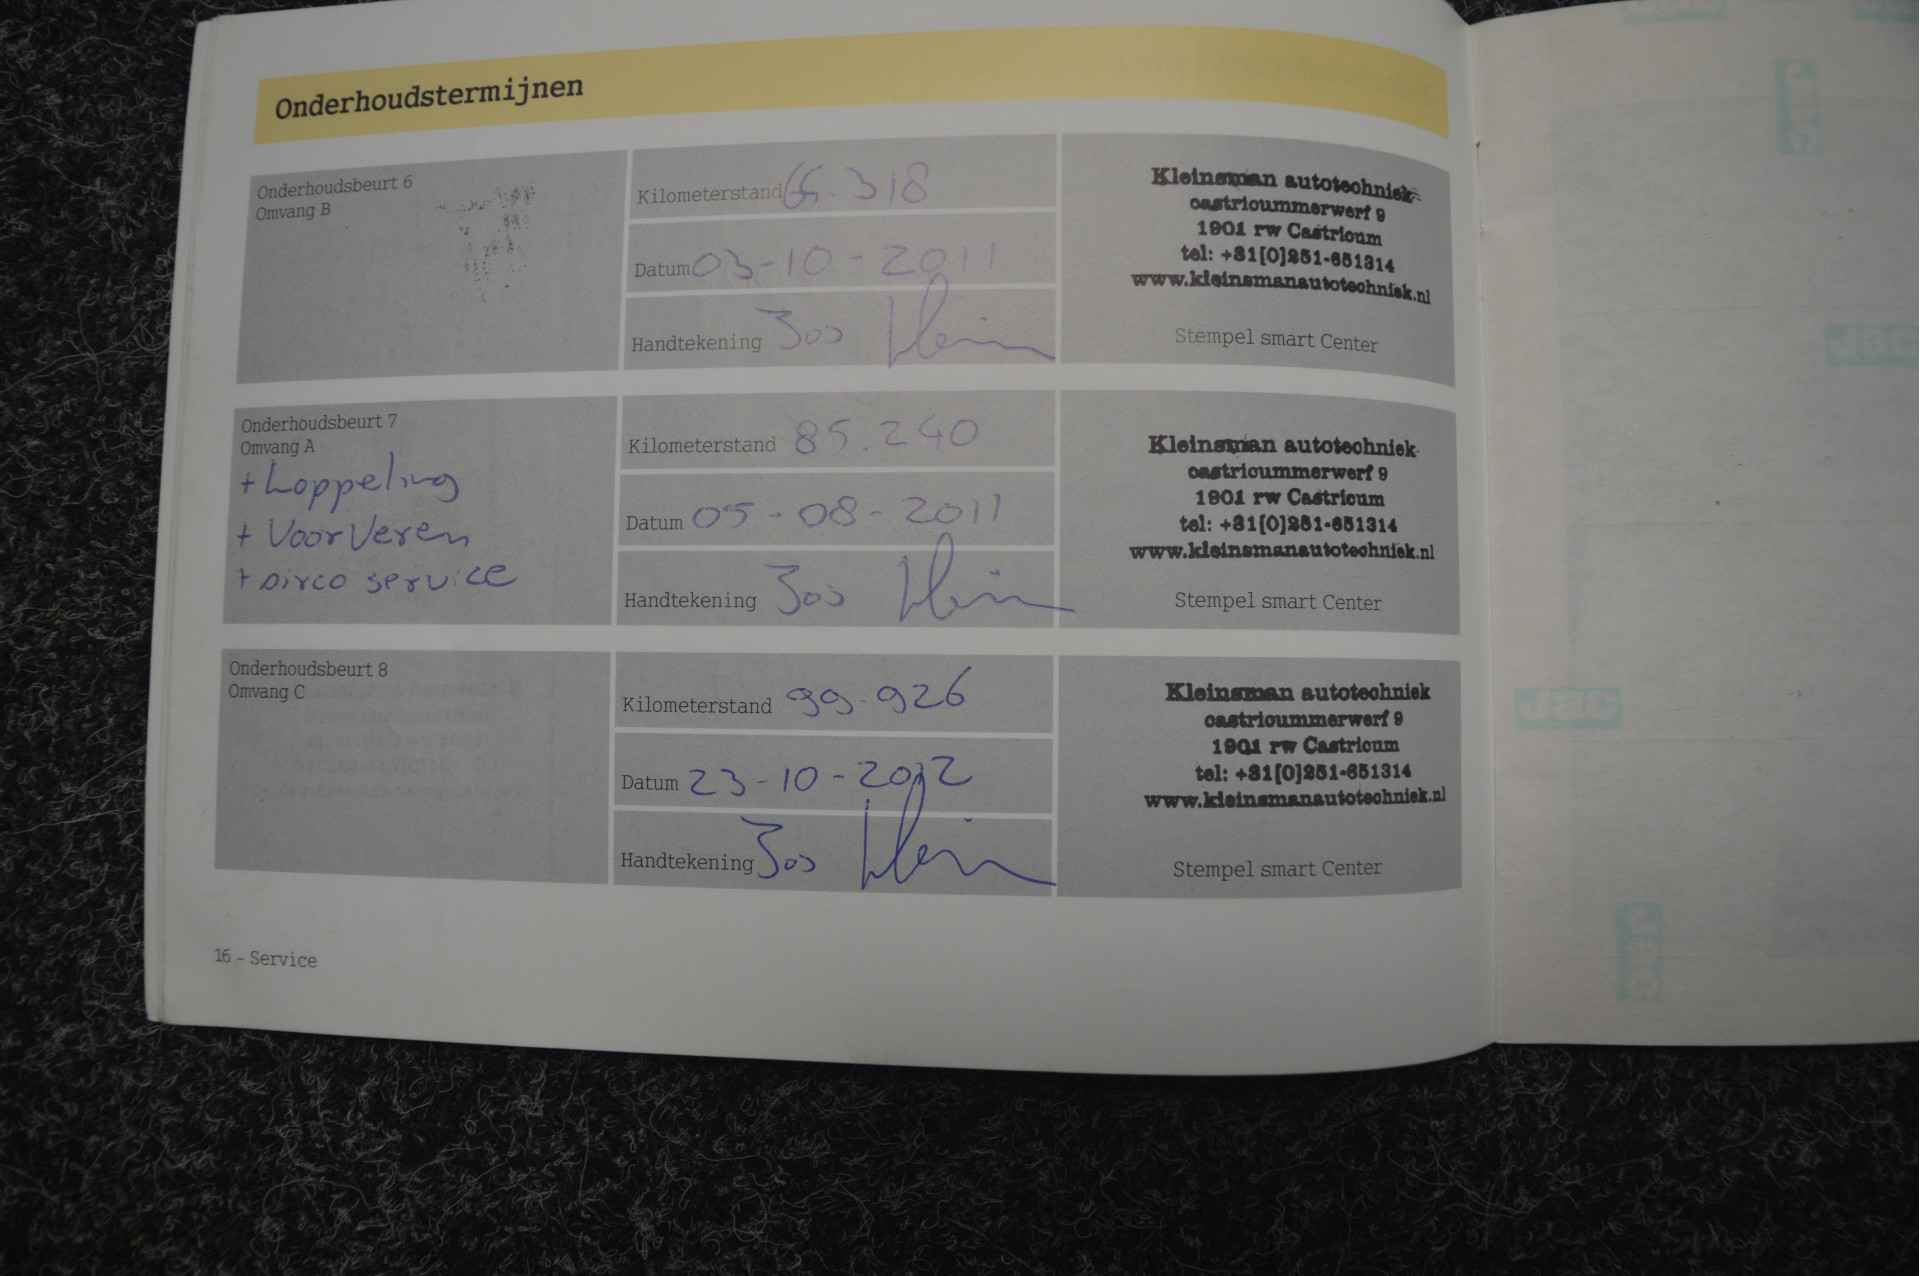 Onderhoudstermijnen
Onderhoudsbeurt 6
Omvang B
Kilometerstand 66.318
Datum 03-10-2011
Handtekening Jos
Kleinsman autotechniek
castricummerwerf 9
1901 rw Castricum
tel: +31[0]251-651314
www.kleinsmanautotechniek.nl
Stempel smart Center
Onderhoudsbeurt 7
Omvang A
+ koppeling
+ Voorveren
+ airco service
Kilometerstand 85.240
Datum 05-08-2011
Handtekening Jos
Kleinsman autotechniek
castricummerwerf 9
1901 rw Castricum
tel: +31[0]251-651314
www.kleinsmanautotechniek.nl
Stempel smart Center
Onderhoudsbeurt 8
Omvang C
Kilometerstand 99.926
Datum 23-10-2012
Handtekening Jos
Kleinsman autotechniek
castricummerwerf 9
1901 rw Castricum
tel: +31[0]251-651314
www.kleinsmanautotechniek.nl
Stempel smart Center
16 - Service